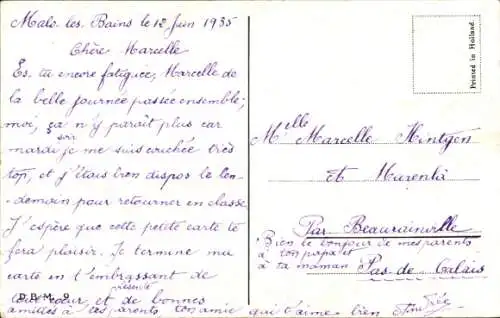 Malo. les. Bains le 12 Juin 1935
Chère Marcelle
Es. tu encore fatiguée, Marcelle de
la belle journée passée ensemble;
moi, ça n'y paraît plus car
mardi soir je me suis couchée très
top, et j'étais bien dispos le len-
-demain pour retourner en classe
J'espère que cette petite carte te
fera plaisir. Je termine ma
carte en t'embrassant de
tout cœur et de bonnes
amitiés à ces parents. ton amie qui t'aime bien
D.B.M. 9
Printed in Holland.
Melle Marcelle
et
Par Beaurainville
Pas de Calais
Bien le bonjour de mes parents
à ton papa et
à ta maman